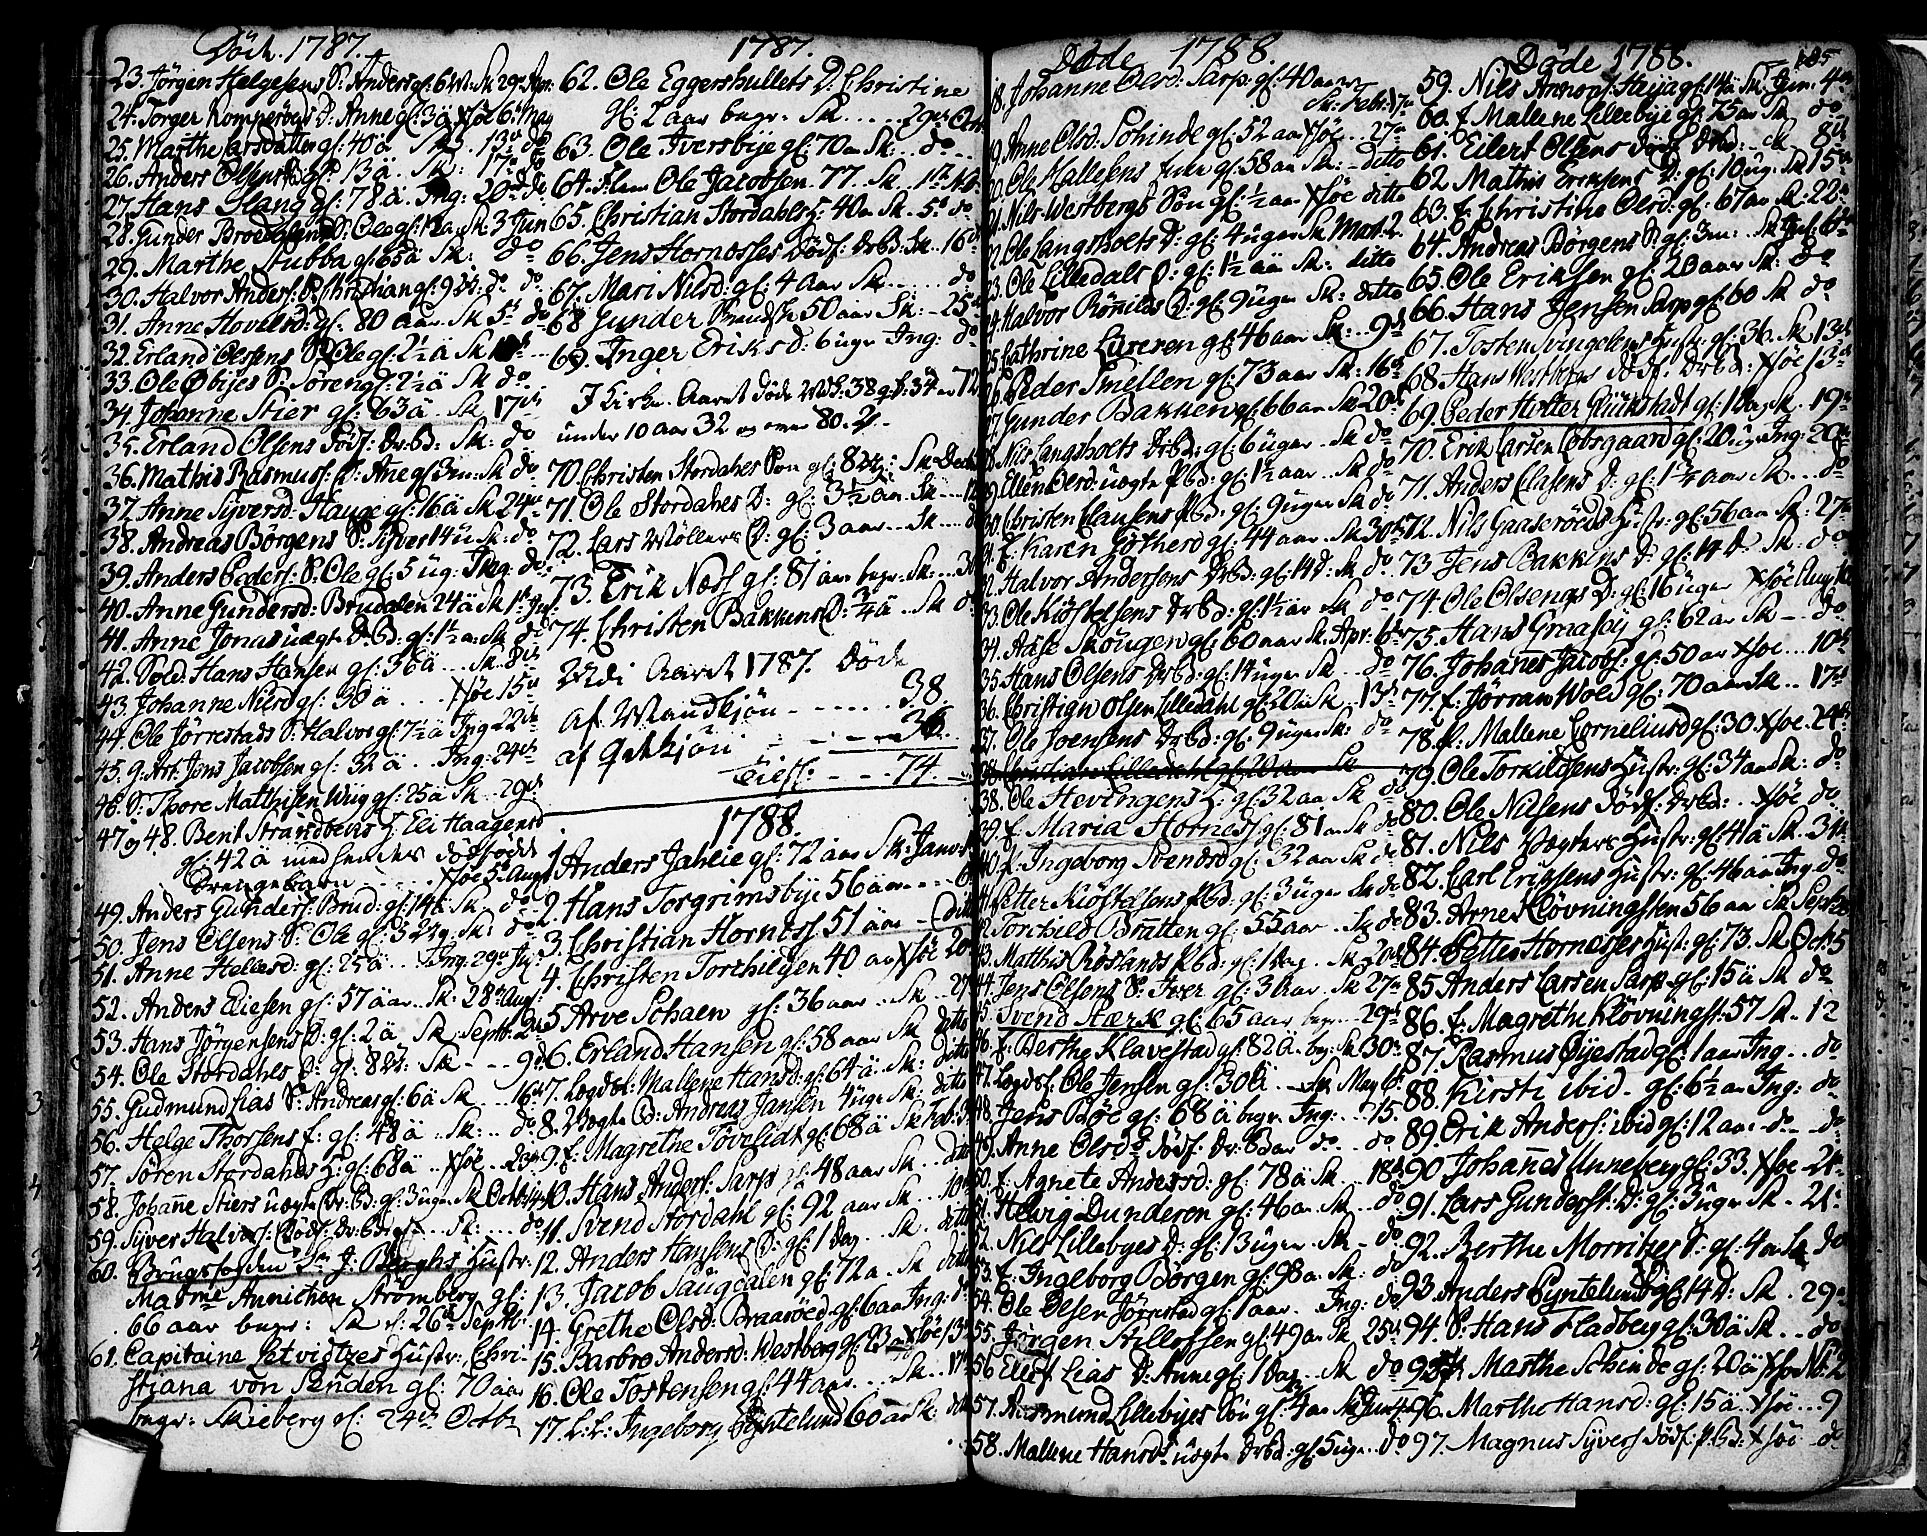 Död. 1787.
23. Jörgen Helgesens S: Anders gl: 6 W: Sk 29de Apr:
24. Torger Romperöens D: Anne gl: 3 ä Xsöe 6te May
25. Marthe Larsdatter gl: 40 ä Sk 13de do
26. Anders Olsens gl: 13 ä Sk: 17de do
27. Hans Stang gl: 78 ä. Ing: 20de do
28. Gunder Broedalens S: Ole gl: 12 a Sk 3 Jun
29. Marthe Stubba gl: 65 ä Sk: do
30. Halvor Anders: S: Christian gl: 9 do do
31. Anne Hovelsd: gl: 80 aar Sk 5te do
32. Erland Olsens S: Ole gl: 2½ ä Sk
33. Ole Øbyes S: Søren gl: 2½ ä Sk do
34. Johanne Stier gl: 63 ä Sk 17de
35. Erland Olsens Dödf: Dr:Bd: Sk: do
36. Mathis Rasmus: D: Ane gl: 3 m: Sk do
37. Anne Syversd: Hauge gl: 16 ä Sk 24de
38. Andreas Börgens S: Syver 14 ü Sk: do
39. Anders Peders: S: Ole gl: 5 ug: Ing: do
40. Anne Gundersd: Brudalen 24 ä Sk 1te Jul:
41. Anne Jonas uægte Dr:Bd: gl: 1½ a Sk do
42. Sold. Hans Hansen gl: 36 ä .. Sk. 8de
43. Johanne Nilsd gl: 30 ä ... Xsöe 15de
44. Ole Jörrestads S: Halvor gl: 7½ ä Ing 22de
45. g. Art. Jens Jacobsen gl: 32 ä . Ing: 24de
46. S: Thore Matthisen Wiig gl: 25 ä Sk .. 29de
47 og 48. Bent Strandbens H: Eli Haagensd
gl: 42 ä med hendes dödfödde
Drengebarn ... Xsöe 5te Aug
49. Anders Gunders: Brud: gl: 14 Sk do
50. Jens Olsens S: Ole gl: 3 Sk: do
51. Anne Helliesd: gl: 25 ä .. Ing. 29de
52. Anders Eliesen gl: 57 aar .. Sk: 28de Aug:
53. Hans Jörgensens D: gl: 2 ä Sk Septb. 2
54. Ole Stordahls D: gl: 8 Sk - - 9de
55. Gudmund Lias S: Andreas gl: 6 ä Sk .. 16de
56. Helge Thorsens f: gl: 48 ä .. Sk: .. do
57. Sören Stordahls H: gl: 68 ä .. Xsöe .. 23
58. Johane Stiers uægte Dr:Bd: gl: 3 uger Sk Octb: 14
59. Syver Halvors: Dödf: Dr:Bd: .. Sk: ... do
60. Brugsfogden Sr J. Berghs Hustr:
Madme Annichen Strömberg gl:
66 aar begr: Sk d: 26de Septbr.
61. Capitaine Sitvidtzes Hustr: Chri-
stiana von Senden gl: 70 aar
begr: Skieberg d: 24de Octbr
1787.
62. Ole Eggershullets D: Christine
gl: 2 aar begr. Sk .... 29de Octb
63. Ole Iversbye gl: 70 a Sk: .. do
64. Ole Jacobsen 77. Sk. 1te Nov.
65. Christian Stordahls H: 40 a Sk. 5te do
66. Jens Hornæsses Dödf: Dr:Bd: Sk .. 16de
67. Mari Nilsd: gl: 4 aar Sk ..... do
68 Gunder 50 aar Sk: - 25de
69. Inger Eriks D: 6 uger Ing: do
I Kirke-Aaret döde M:K: 38 Q:K: 34 er 72
under 10 aar 32 og over 80. 2.
70. Christen Stordahls Son gl: 8 : Sk Decb
71. Ole Stordahls D: gl: 3½ aar. Sk. - 12
72. Lars Möllers D: gl: 3 aar .. Sk ... d
73. Erik Næss gl: 81 aar begr: Sk: .. 3
74. Christen Bakkens D: ¾ ä .. Sk do
Udi Aaret 1787. döde
af Mandkjön - - . . . . 38
af Qvikjön - - - - 36
Tils: - - - 74.
1788.
1 Anders Jahlie gl: 72 aar Sk: Janv:
2. Hans Torgrimsbye 56 aar - - - 6
3. Christian Hornæss 51 aar - ditto
4. Christen Torchilsen 40 aar Xsöe 20
5 Arve Schaen gl: 36 aar .. Sk .. 27
6. Erland Hansen gl: 58 aar Sk ditto
7. Logdsk: Mallene Hansd: gl: 64 ä .. Sk: ditto
8. Uægte Bd: Andreas Jansen 4 uger Sk: ditto
9. f. Magrethe Tövelidt gl: 68 ä Sk Feb: 3
10. Hans Anders: Sarps gl: 48 aar Sk .. ditto
11. Svend Stordahl gl: 92 aar Sk .. 10de
12. Anders Hansens D: gl: 1 dag .. Sk. ditto
13. Jacob Saugdalen gl: 72 a. Sk ditto
14. Grethe Olsd: Braaröed gl: 6 aar Ing: do
15. Barbro Andersd: Westberg gl: 23 a Xsöe 13
16. Ole Tostensen gl: 44 aar .. Sk .. 17
17. L:L: Ingeborg Gyntelund 60 aar Sk: ditto
Döde 1788.
18. Johanne Olsd: Sarps: gl: 40 aar
Sk: Febr: 17de
19. Anne Olsd. Schinde gl: 52 aar Xsöe .. 27de
20. Ole Hallesens f gl: 58 aar Sk: - ditto
21. Nils Westbergs Son gl: ½ aar Xsöe ditto
22. Ole Langsholts D: gl: 4 uger Sk Mart. 2
23. Ole Lilledals D: gl: 1½ aar Sk: ditto
24. Halvor Römilds D: gl: 9 uger Sk: ditto
25. Cathrine Larssen gl: 46 aar Sk: .. 9de
26. Peder Smellen gl: 73 aar Sk: 16de
27. Gunder Bakken gl: 66 aar Sk 20de
28. Nils Langsholts Dr:Bd: gl: 6 uger .. Sk do
29. Ellen Olsd: uægte P:Bd: gl: 1½ aar .. Sk do
30. Christen Clausens P:Bd: gl: 9 uger Sk do
31. f. Karen Gotherd gl: 44 aar Sk 30de
32. Halvor Andersens Dr:Bd: gl: 14 D: Sk do
33. Ole Kiöstelsens Dr:Bd: gl: 1½ aar Sk do
34. Aase Skougen gl: 60 aar Sk: Apr: 6te
35. Hans Olsens Dr:Bd: gl: 14 uger Sk .. do
36. Christian Olsen Lilledahl gl: 20 ä Sk .. 13de
37. Ole Joensens Dr:Bd: gl: 9 uger Sk: do
38. Christian Lilledahl gl: 20 aar Sk
38. Ole Hevengens H: gl: 32 aar Sk do
39. f. Maria Hornæss gl: 81 a Sk do
40. f. Ingeborg Svendsd gl: 32 aar Sk do
41. Petter Kiöstelsens P:Bd: gl: 3 uger Sk do
42. Torchild Bratten gl: 55 aar .. Sk do
43. Matthis Röslands P:Bd: gl: 1 dag .. Sk 20de
44. Jens Olsens S: Iver gl: 3 aar Sk 27de
45. Svend Stærk gl: 65 aar begr ... 29de
46. f. Berthe Klavestad gl: 82 ä. beg: Sk 30de
47. Logdsf: Ole Jensen gl: 30 ä .. Sk: May 1te
48. Jens Böe gl: 68 ä begr. Ing: .. 15
49. Anne Olsds dödf: Dr:Barn do .. do
50. f. Agnete Andersd: gl: 78 ä Sk . 18de
51. Helvig Dunderon gl: 46 a Sk . do
52. Nils Lillebyes D: gl: 13 uger . Sk - do
53. f. Ingeborg Börgen gl: 98 a. Sk: do
54. Ole Olsen Jörrestad gl: 1 aar . Ing: do
55. Jörgen Stillofsen gl: 49 a Sk 25de
56. Ellef Lias D: Anne gl: 1 dag .. Sk do
57. Aasmund Lillebyes Son gl: 4 a Sk Jun: 1
58. Mallene Hansds uægte Dr:bd: gl: 5 uger .. do
Döde 1788. 105
59. Nils Annops: Heija gl: 14 ä Sk Jun. 4de
60. f. Mallene Lillebye gl: 75 aar Sk do
61. Eilert Olsens dödf. Dr:bd: Sk 8de
62. Mathis Eriksens D: gl: 10 ug: Sk 15de
63. f. Christine Olsd: gl: 67 aar Sk: 22de
64. Andreas Börgens S: gl: 3 m: .. Sk Jul: 6te
65. Ole Eriksen gl: 20 aar Sk: do
66. Hans Jensen Sarp gl: 60 Sk do
67. Tosten Svingelens Hustr: gl: 36. Sk 13de
68. Hans Westbergs dödf. Dr:Bd: Xsöe 13de
69. Peder Holter Glückstadt gl: 1 dag Sk. 19de
70. Erik Larsen Löbsgaard gl: 20 uger Ing: 20de
71. Anders Clasens D: gl: 1¼ aar Sk .. do
72. Nils Gaaseröeds Hustr: gl: 56 aar Sk: 27de
73 Jens Bakkens D: gl: 14 D. Sk: do
74 Ole Olsengs D: gl: 16 uger Xsöe Aug: 10
75. Hans Graasöy gl: 62 ar Sk - - do
76. Johanes Jacobs: gl: 50 ar Xsöe .. 10de
77. f. Jörran Wold gl: 70 aar Sk .. 17de
78. P. Mallene Corneliusd gl: 30 Xsöe . 24de
79. Ole Torkildsens Hustr: gl: 34 aar Sk: do
80. Ole Nilsens Dödf: Dr:bd: .. Xsöe do
81. Nils Vægters Hustr: gl: 41 ä Sk. 31te
82. Carl Erichsens Hustr: gl: 46 aar Ing do
83. Arne Klövningsten 56 aar Sk Septb
84. Petter Hornæsses Hust: gl: 73. Sk Octb: 5
85 Anders Larsen Sarp gl: 15 ä Sk do
86. f. Magrethe Klövningst: 57 Sk. 12
87. Rasmus Øyestad gl: 1 aar Ing . . do
88. Kirsti ibid - gl: 6½ aar Ing: do
89. Erik Anders: ibid gl: 12 aar - do - - do
90. Johanes Unneberg gl: 33 . Xsöe 21de
91. Lars Gunders: D: gl: 3 uger Sk - 21:
92. Berthe Morritzes S: gl: 4 a Sk do
93. Anders Gyntelund gl: 14 D: Sk . 29de
94. S: Hans Fladberg gl: 30 ä Sk . . do
95. Marthe Schinde gl: 20 ä Xsöe Nov: 2
96. Marthe Hansd: gl: 15 ä . Xsöe ... 9
97. Magnus Syvers dödf: P:Bd: Xsöe do